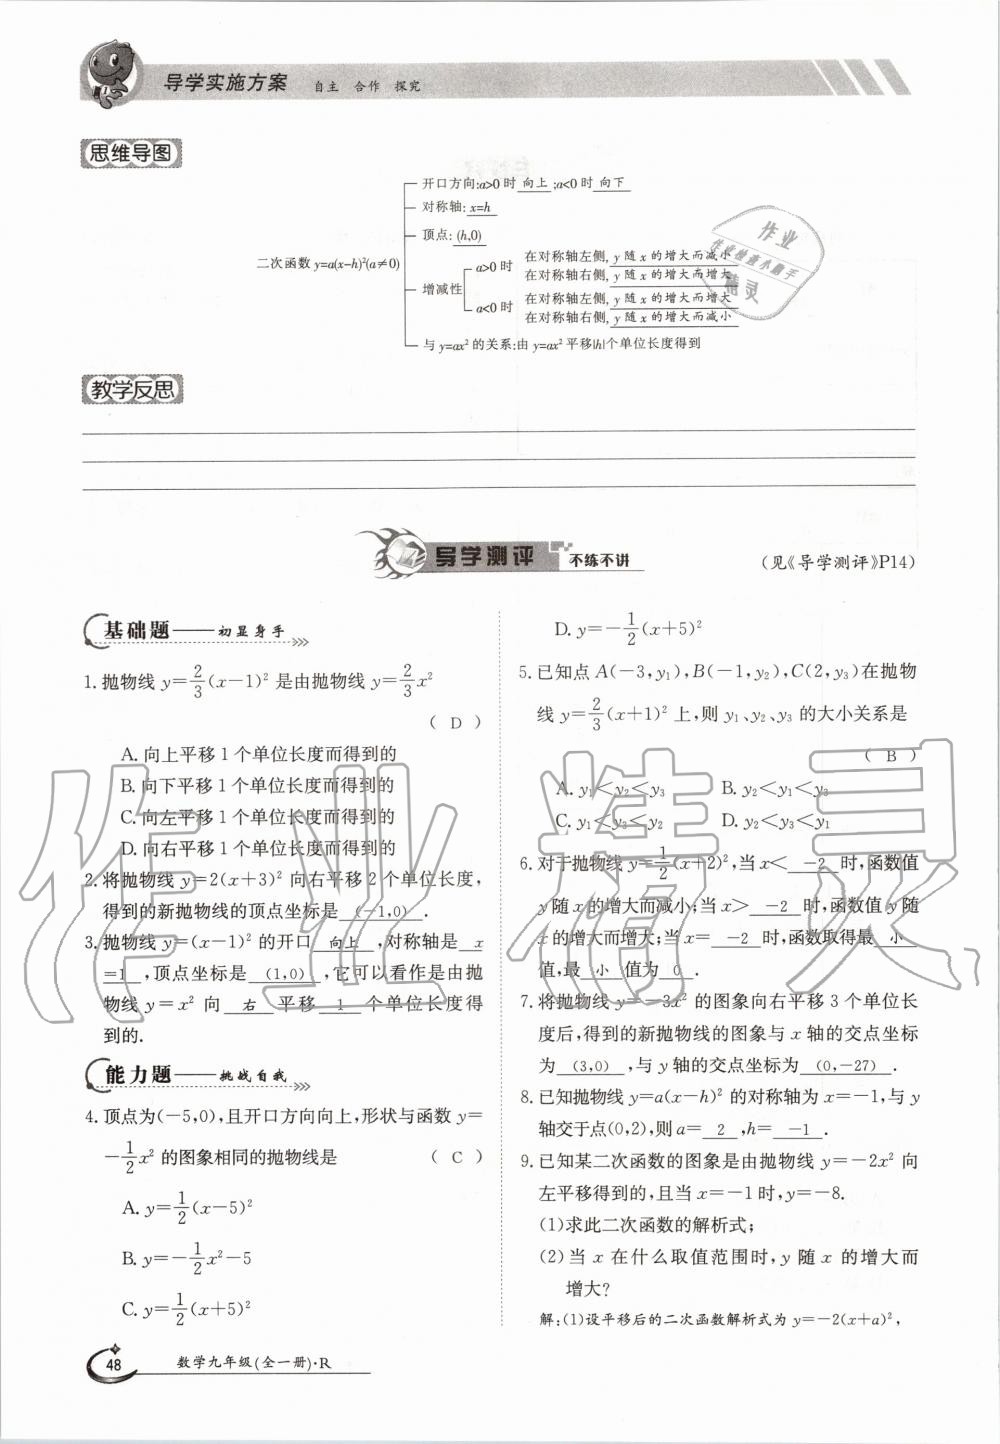 导学实施方案 自主 合作 探究
思维导图
开口方向:a>0 时 向上 ;a<0 时 向下
对称轴: x=h
顶点: (h,0)
二次函数 y=a(x-h)²(a≠0)
增减性
a>0 时
在对称轴左侧, y 随 x 的增大而减小
在对称轴右侧, y 随 x 的增大而增大
a<0 时
在对称轴左侧, y 随 x 的增大而增大
在对称轴右侧, y 随 x 的增大而减小
与 y=ax² 的关系:由 y=ax² 平移|h|个单位长度得到
教学反思
导学测评 不练不讲
(见《导学测评》P14)
基础题——初显身手
1. 抛物线 y=2/3(x-1)² 是由抛物线 y=2/3x²
( D )
A. 向上平移 1 个单位长度而得到的
B. 向下平移 1 个单位长度而得到的
C. 向左平移 1 个单位长度而得到的
D. 向右平移 1 个单位长度而得到的
2. 将抛物线 y=2(x+3)² 向右平移 2 个单位长度,
得到的新抛物线的顶点坐标是 (-1,0) .
3. 抛物线 y=(x-1)² 的开口 向上 ,对称轴是 x
=1 ,顶点坐标是 (1,0) ,它可以看作是由抛
物线 y=x² 向 右 平移 1 个单位长度得
到的.
能力题——挑战自我
4. 顶点为(-5,0),且开口方向向上,形状与函数 y=
-1/2x² 的图象相同的抛物线是 ( C )
A. y=1/2(x-5)²
B. y=-1/2x²-5
C. y=1/2(x+5)²
D. y=-1/2(x+5)²
5. 已知点 A(-3,y₁),B(-1,y₂),C(2,y₃)在抛物
线 y=2/3(x+1)² 上,则 y₁、y₂、y₃ 的大小关系是
( B )
A. y₁<y₂<y₃ B. y₂<y₁<y₃
C. y₁<y₃<y₂ D. y₂<y₃<y₁
6. 对于抛物线 y=1/2(x+2)²,当 x< -2 时,函数值
y 随 x 的增大而减小;当 x> -2 时,函数值 y 随
x 的增大而增大;当 x= -2 时,函数取得最 小
值,最 小 值为 0 .
7. 将抛物线 y=-3x² 的图象向右平移 3 个单位长
度后,得到的新抛物线的图象与 x 轴的交点坐标
为 (3,0) ,与 y 轴的交点坐标为 (0,-27) .
8. 已知抛物线 y=a(x-h)² 的对称轴为 x=-1,与 y
轴交于点(0,2),则 a= 2 ,h= -1 .
9. 已知某二次函数的图象是由抛物线 y=-2x² 向
左平移得到的,且当 x=-1 时,y=-8.
(1)求此二次函数的解析式;
(2)当 x 在什么取值范围时,y 随 x 的增大而
增大?
解:(1)设平移后的二次函数解析式为 y=-2(x+a)²,
48 数学九年级(全一册)·R
作业精灵
作业
作业检查小助手
精灵